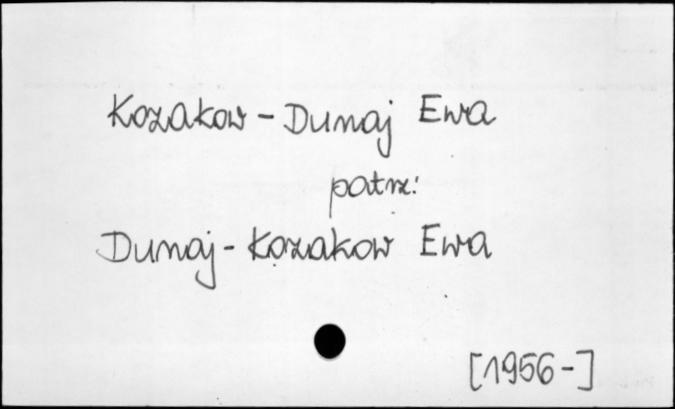 Kozakow - Dunaj Ewa
patrz:
Dunaj - Kozakow Ewa
[1956-]